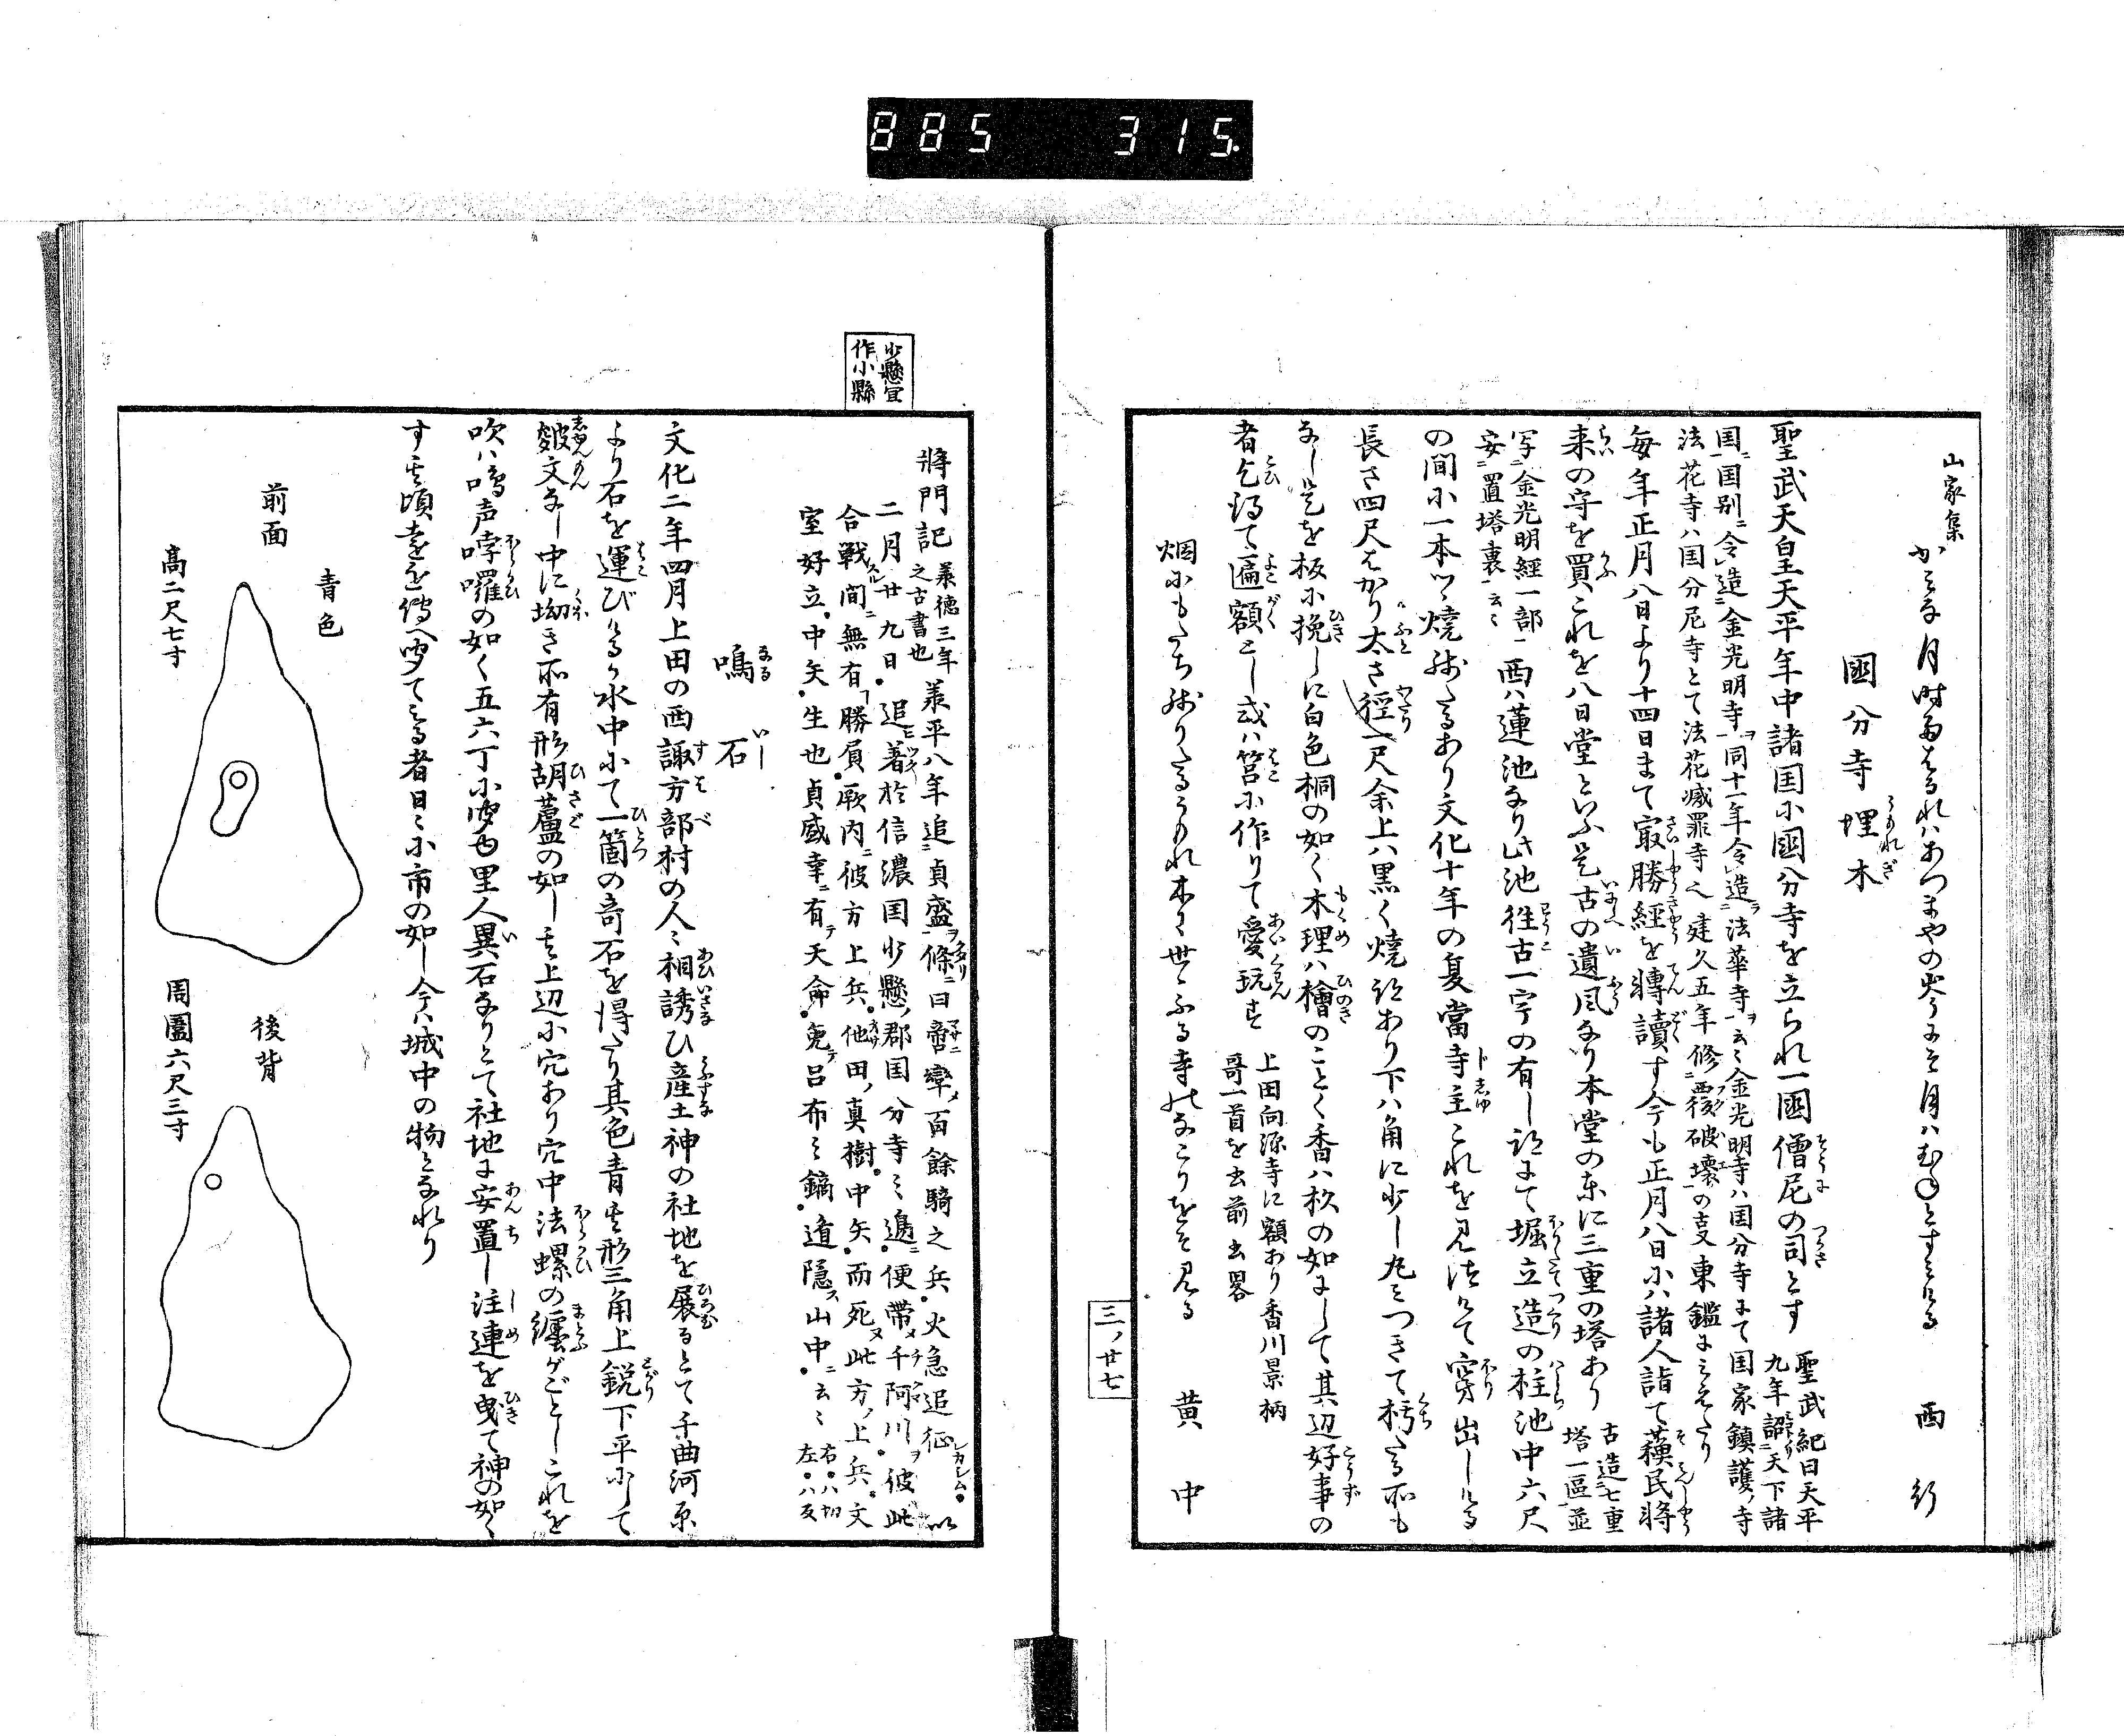 885 315.
山家集
かみな月時雨はるれはあつまやの峯にそ月はむねとすみける 西行
國分寺埋木
聖武天皇天平年中諸国小國分寺を立られ一國僧尼の司とす
聖武紀曰天平
九年詔天下諸
国国別ニ令造金光明寺ヲ同十一年令造法華寺ヲ云々金光明寺ハ国分寺にて国家鎮護ノ寺
法花寺ハ国分尼寺とて法花滅罪寺也建久五年修覆破壊の支東鑑にみえたり
毎年正月八日より十四日まて最勝經を轉讀す今も正月八日小ハ諸人詣て蘓民將
来の守を買これを八日堂といふ是古の遺風なり本堂の東に三重の塔あり
古造七重
塔一區並
写金光明經一部
安置塔裏云々
西ハ蓮池なり此池往古一宇の有し跡にて堀立造の柱池中六尺
の間小一本ツヽ焼残たるあり文化十年の夏當寺主これを見出けて穿出しける
長さ四尺はかり太さ徑一尺余上ハ黒く焼跡あり下ハ角に少し丸みつきて朽たる所も
なし是を板小挽しに白色桐の如く木理ハ檜のことく香ハ杦の如にして其辺好事の
者乞得て遍額とし或ハ筥小作りて愛玩す
上田向源寺に額あり香川景柄
哥一首を出前出畧
烟小もたち残りたるうもれ木は世にふる寺のなこりをそ見る 黄中
三ノ廿七
少縣宜
作小縣
將門記
羕徳三年
之古書也
羕平八年追貞盛條ニ曰啻率百餘騎之兵火急追征以
二月廿九日追着於信濃国少懸郡国分寺之邊便帶千阿川ヲ彼此
合戦間無有勝負厥内彼方上兵他田真樹中矢而死此方ノ上兵文
室好立中矢生也貞盛幸有天命免呂布之鏑遁隠山中云々
右ハ切
左ハ反
鳴石
文化二年四月上田の西諏方部村の人々相誘ひ産土神の社地を展るとて千曲河原
より石を運びけるか水中小て一箇の竒石を得たり其色青其形三角上鋭下平小して
皴文なし中に坳き所有形胡蘆の如し其上辺小穴あり穴中法螺の纏がごとしこれを
吹ハ鳴声哱囉の如く五六丁小聞ゆ里人異石なりとて社地に安置し注連を曳て神の如く
す其頃遠近傳へ聞てみる者日々小市の如し今ハ城中の物となれり
前面
青色
高二尺七寸
後背
周圍六尺三寸